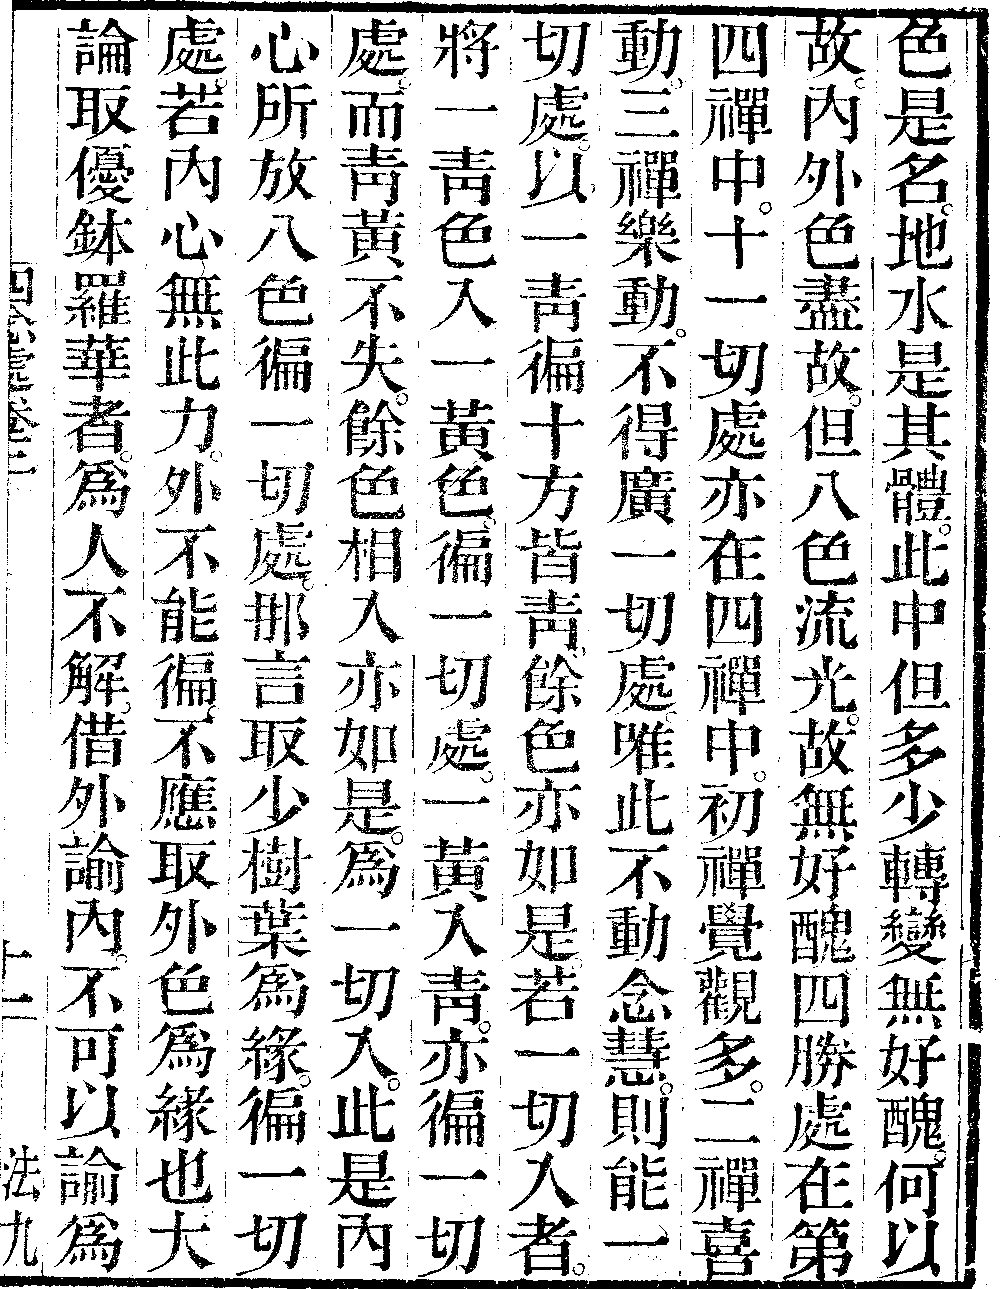 色是名。地水是其體。此中但多少轉變無好醜。何以
故。內外色盡故。但八色流光。故無好醜四勝處在第
四禪中。十一切處亦在四禪中。初禪覺觀多。二禪喜
動。三禪樂動。不得廣一切處。唯此不動念慧。則能一
切處。以一靑徧十方皆靑。餘色亦如是。若一切入者。
將一靑色入一黃色。徧一切處。一黃入靑。亦徧一切
處。而靑黃不失。餘色相入亦如是。爲一切入。此是內
心所放八色徧一切處。那言取少樹葉爲緣。徧一切
處。若內心無此力。外不能徧。不應取外色爲緣也大
論取優鉢羅華者。爲人不解。借外諭內。不可以諭爲
四念處卷二
十一
法九